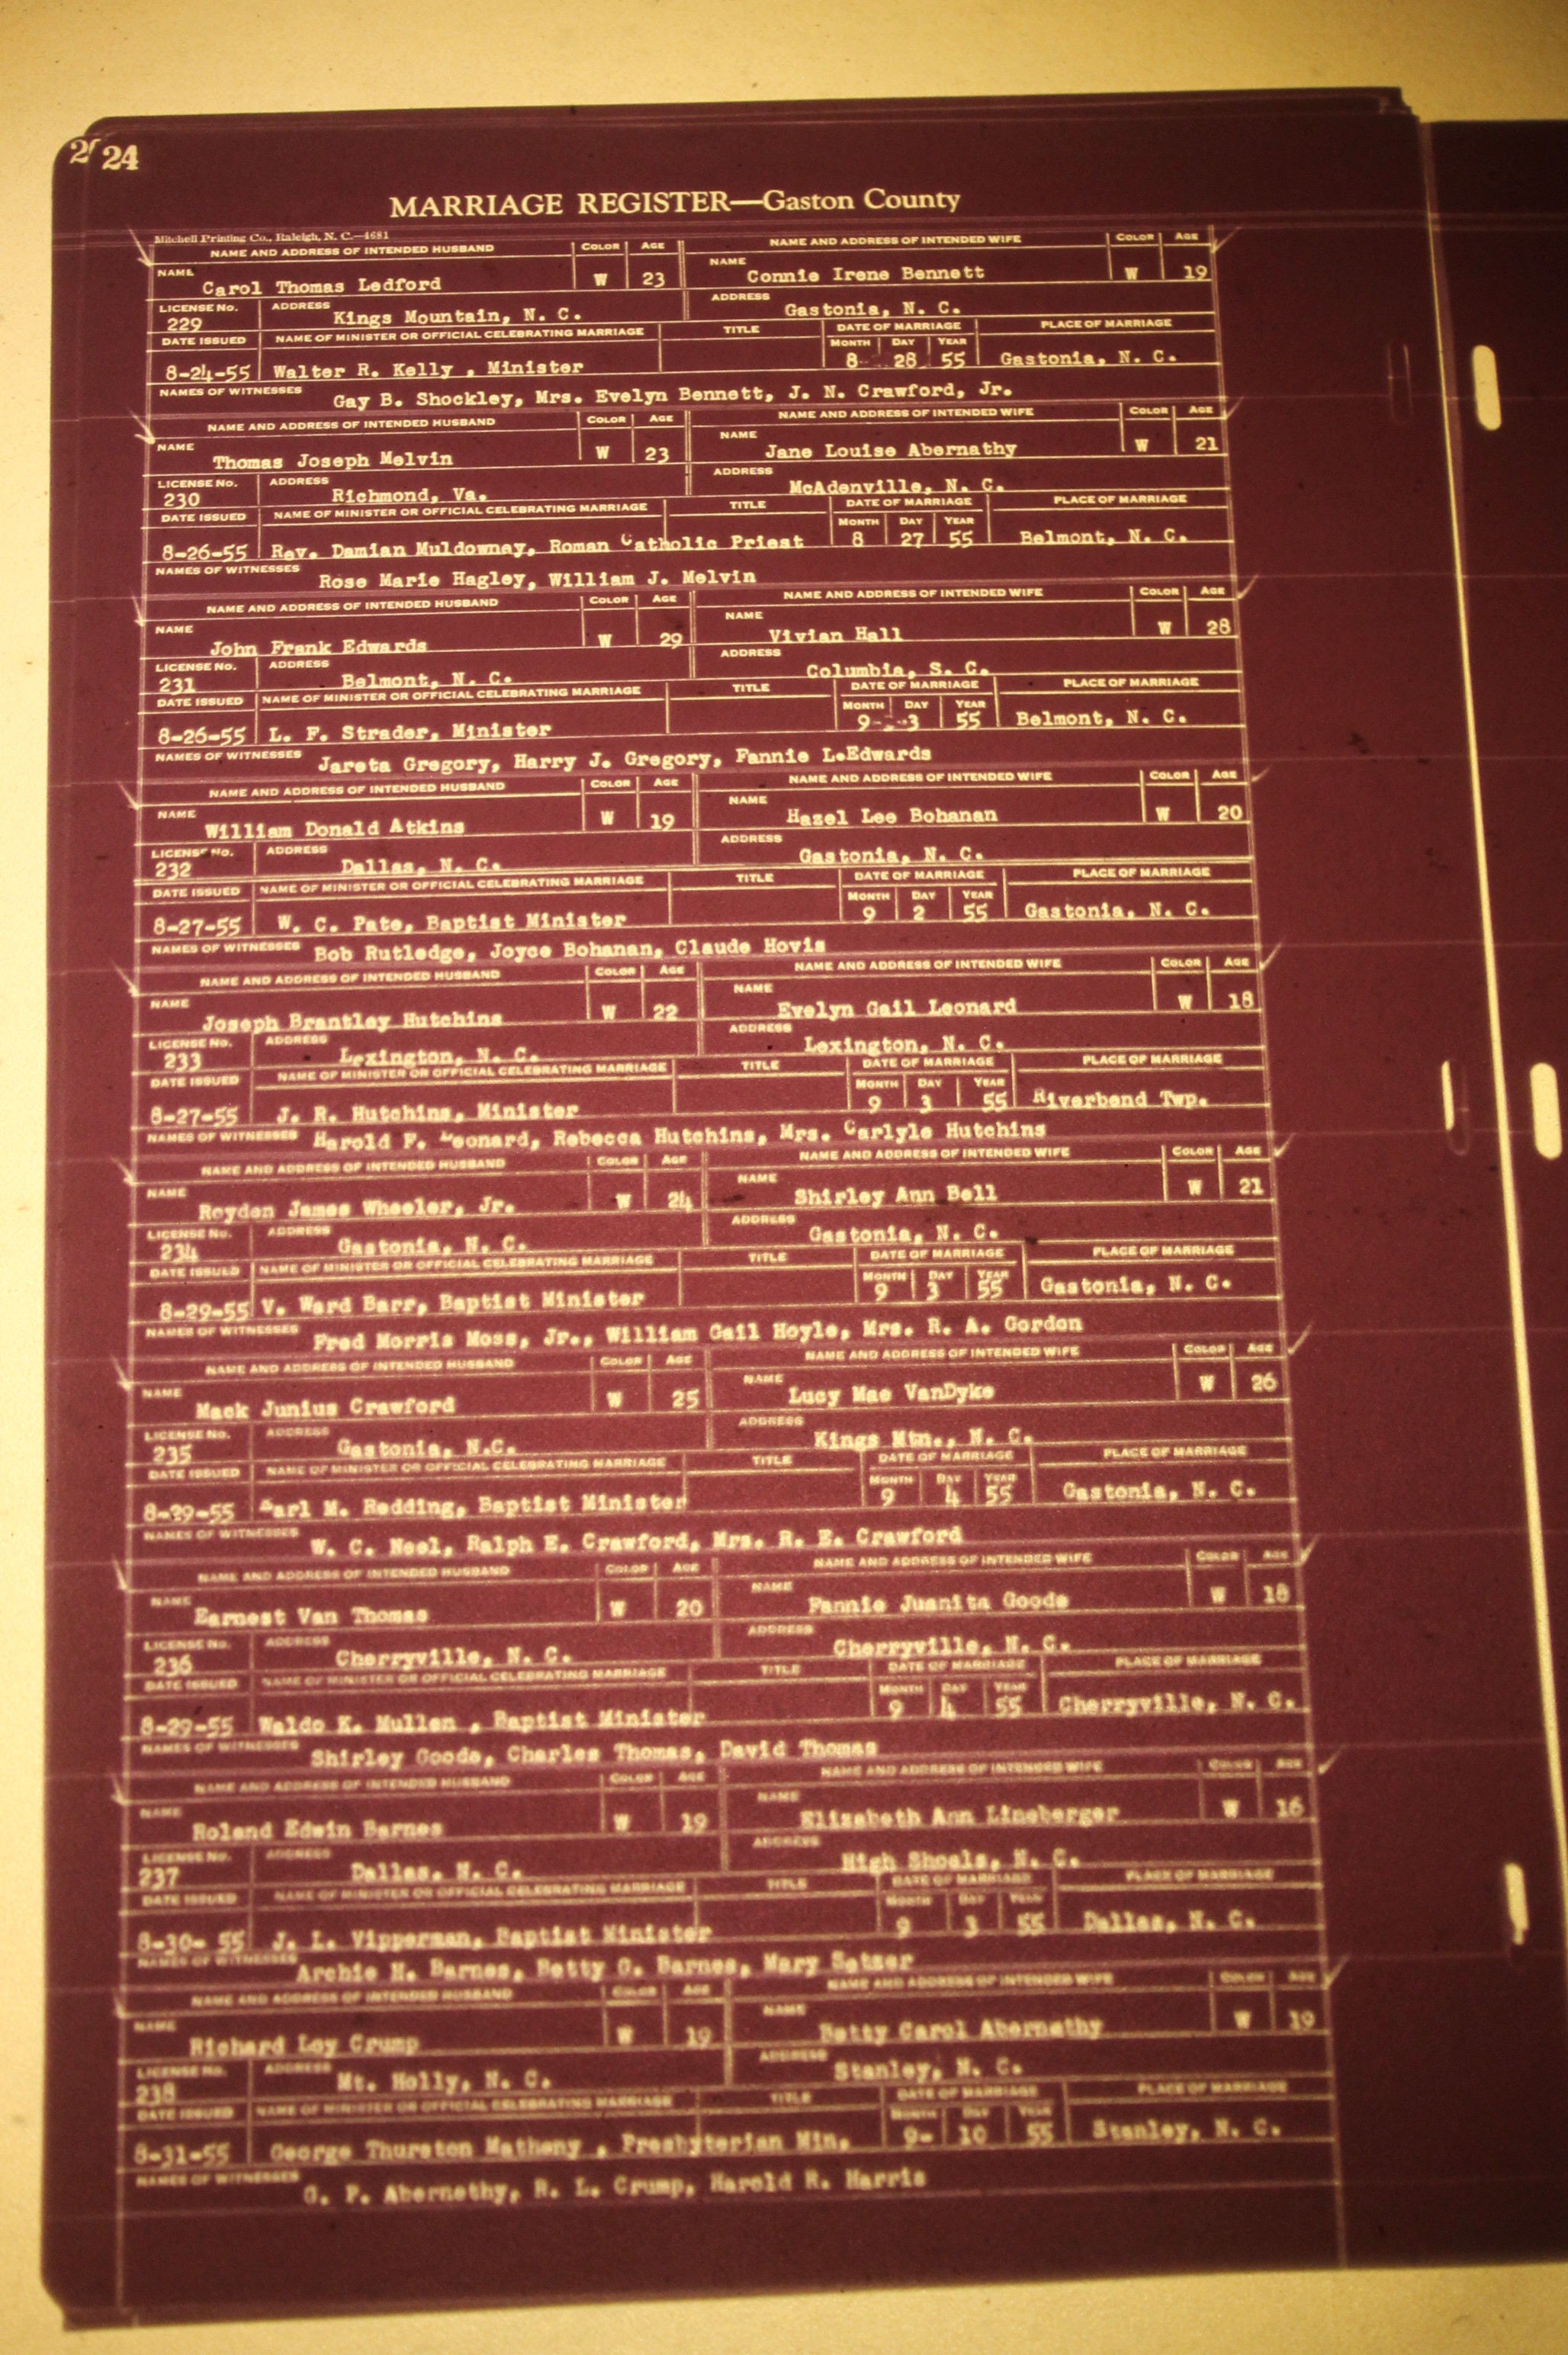 24
MARRIAGE REGISTER—Gaston County
Mitchell Printing Co., Raleigh, N. C.—4681
NAME AND ADDRESS OF INTENDED HUSBAND COLOR AGE NAME AND ADDRESS OF INTENDED WIFE COLOR AGE
NAME Carol Thomas Ledford W 23 NAME Connie Irene Bennett W 19
LICENSE No. 229 ADDRESS Kings Mountain, N. C. ADDRESS Gastonia, N. C.
DATE ISSUED NAME OF MINISTER OR OFFICIAL CELEBRATING MARRIAGE TITLE DATE OF MARRIAGE PLACE OF MARRIAGE
MONTH DAY YEAR
8-24-55 Walter R. Kelly , Minister 8 28 55 Gastonia, N. C.
NAMES OF WITNESSES Gay B. Shockley, Mrs. Evelyn Bennett, J. N. Crawford, Jr.
NAME AND ADDRESS OF INTENDED HUSBAND COLOR AGE NAME AND ADDRESS OF INTENDED WIFE COLOR AGE
NAME Thomas Joseph Melvin W 23 NAME Jane Louise Abernathy W 21
LICENSE No. 230 ADDRESS Richmond, Va. ADDRESS McAdenville, N. C.
DATE ISSUED NAME OF MINISTER OR OFFICIAL CELEBRATING MARRIAGE TITLE DATE OF MARRIAGE PLACE OF MARRIAGE
MONTH DAY YEAR
8-26-55 Rev. Damian Muldowney, Roman Catholic Priest 8 27 55 Belmont, N. C.
NAMES OF WITNESSES Rose Marie Hagley, William J. Melvin
NAME AND ADDRESS OF INTENDED HUSBAND COLOR AGE NAME AND ADDRESS OF INTENDED WIFE COLOR AGE
NAME John Frank Edwards W 29 NAME Vivian Hall W 28
LICENSE No. 231 ADDRESS Belmont, N. C. ADDRESS Columbia, S. C.
DATE ISSUED NAME OF MINISTER OR OFFICIAL CELEBRATING MARRIAGE TITLE DATE OF MARRIAGE PLACE OF MARRIAGE
MONTH DAY YEAR
8-26-55 L. F. Strader, Minister 9 3 55 Belmont, N. C.
NAMES OF WITNESSES Jareta Gregory, Harry J. Gregory, Fannie L.Edwards
NAME AND ADDRESS OF INTENDED HUSBAND COLOR AGE NAME AND ADDRESS OF INTENDED WIFE COLOR AGE
NAME William Donald Atkins W 19 NAME Hazel Lee Bohanan W 20
LICENSE No. 232 ADDRESS Dallas, N. C. ADDRESS Gastonia, N. C.
DATE ISSUED NAME OF MINISTER OR OFFICIAL CELEBRATING MARRIAGE TITLE DATE OF MARRIAGE PLACE OF MARRIAGE
MONTH DAY YEAR
8-27-55 W. C. Pate, Baptist Minister 9 2 55 Gastonia, N. C.
NAMES OF WITNESSES Bob Rutledge, Joyce Bohanan, Claude Hovis
NAME AND ADDRESS OF INTENDED HUSBAND COLOR AGE NAME AND ADDRESS OF INTENDED WIFE COLOR AGE
NAME Joseph Brantley Hutchins W 22 NAME Evelyn Gail Leonard W 18
LICENSE No. 233 ADDRESS Lexington, N. C. ADDRESS Lexington, N. C.
DATE ISSUED NAME OF MINISTER OR OFFICIAL CELEBRATING MARRIAGE TITLE DATE OF MARRIAGE PLACE OF MARRIAGE
MONTH DAY YEAR
8-27-55 J. R. Hutchins, Minister 9 3 55 Riverbend Twp.
NAMES OF WITNESSES Harold F. Leonard, Rebecca Hutchins, Mrs. Carlyle Hutchins
NAME AND ADDRESS OF INTENDED HUSBAND COLOR AGE NAME AND ADDRESS OF INTENDED WIFE COLOR AGE
NAME Royden James Wheeler, Jr. W 24 NAME Shirley Ann Bell W 21
LICENSE No. 234 ADDRESS Gastonia, N. C. ADDRESS Gastonia, N. C.
DATE ISSUED NAME OF MINISTER OR OFFICIAL CELEBRATING MARRIAGE TITLE DATE OF MARRIAGE PLACE OF MARRIAGE
MONTH DAY YEAR
8-29-55 V. Ward Barr, Baptist Minister 9 3 55 Gastonia, N. C.
NAMES OF WITNESSES Fred Morris Moss, Jr., William Gail Hoyle, Mrs. R. A. Gordon
NAME AND ADDRESS OF INTENDED HUSBAND COLOR AGE NAME AND ADDRESS OF INTENDED WIFE COLOR AGE
NAME Mack Junius Crawford W 25 NAME Lucy Mae VanDyke W 26
LICENSE No. 235 ADDRESS Gastonia, N.C. ADDRESS Kings Mtn., N. C.
DATE ISSUED NAME OF MINISTER OR OFFICIAL CELEBRATING MARRIAGE TITLE DATE OF MARRIAGE PLACE OF MARRIAGE
MONTH DAY YEAR
8-29-55 M. Redding, Baptist Minister 9 4 55 Gastonia, N. C.
NAMES OF WITNESSES W. C. Neel, Ralph E. Crawford, Mrs. R. E. Crawford
NAME AND ADDRESS OF INTENDED HUSBAND COLOR AGE NAME AND ADDRESS OF INTENDED WIFE COLOR AGE
NAME Earnest Van Thomas W 20 NAME Fannie Juanita Goode W 18
LICENSE No. 236 ADDRESS Cherryville, N. C. ADDRESS Cherryville, N. C.
DATE ISSUED NAME OF MINISTER OR OFFICIAL CELEBRATING MARRIAGE TITLE DATE OF MARRIAGE PLACE OF MARRIAGE
MONTH DAY YEAR
8-29-55 Waldo K. Mullen , Baptist Minister 9 4 55 Cherryville, N. C.
NAMES OF WITNESSES Shirley Goode, Charles Thomas, David Thomas
NAME AND ADDRESS OF INTENDED HUSBAND COLOR AGE NAME AND ADDRESS OF INTENDED WIFE COLOR AGE
NAME Roland Edwin Barnes W 19 NAME Elizabeth Ann Lineberger W 16
LICENSE No. 237 ADDRESS Dallas, N. C. ADDRESS High Shoals, N. C.
DATE ISSUED NAME OF MINISTER OR OFFICIAL CELEBRATING MARRIAGE TITLE DATE OF MARRIAGE PLACE OF MARRIAGE
MONTH DAY YEAR
8-30- 55 J. L. Vipperman, Baptist Minister 9 3 55 Dallas, N. C.
NAMES OF WITNESSES Archie H. Barnes, Betty G. Barnes, Mary Setzer
NAME AND ADDRESS OF INTENDED HUSBAND COLOR AGE NAME AND ADDRESS OF INTENDED WIFE COLOR AGE
NAME Richard Loy Crump W 19 NAME Betty Carol Abernathy W 19
LICENSE No. 238 ADDRESS Mt. Holly, N. C. ADDRESS Stanley, N. C.
DATE ISSUED NAME OF MINISTER OR OFFICIAL CELEBRATING MARRIAGE TITLE DATE OF MARRIAGE PLACE OF MARRIAGE
MONTH DAY YEAR
8-31-55 George Thurston Matheny , Presbyterian Min. 9- 10 55 Stanley, N. C.
NAMES OF WITNESSES G. F. Abernethy, R. L. Crump, Harold R. Harris